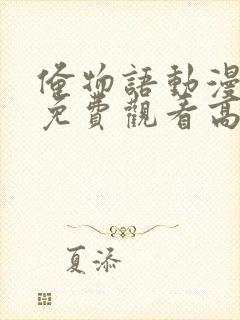 俺物語動漫
免費觀看高
夏添